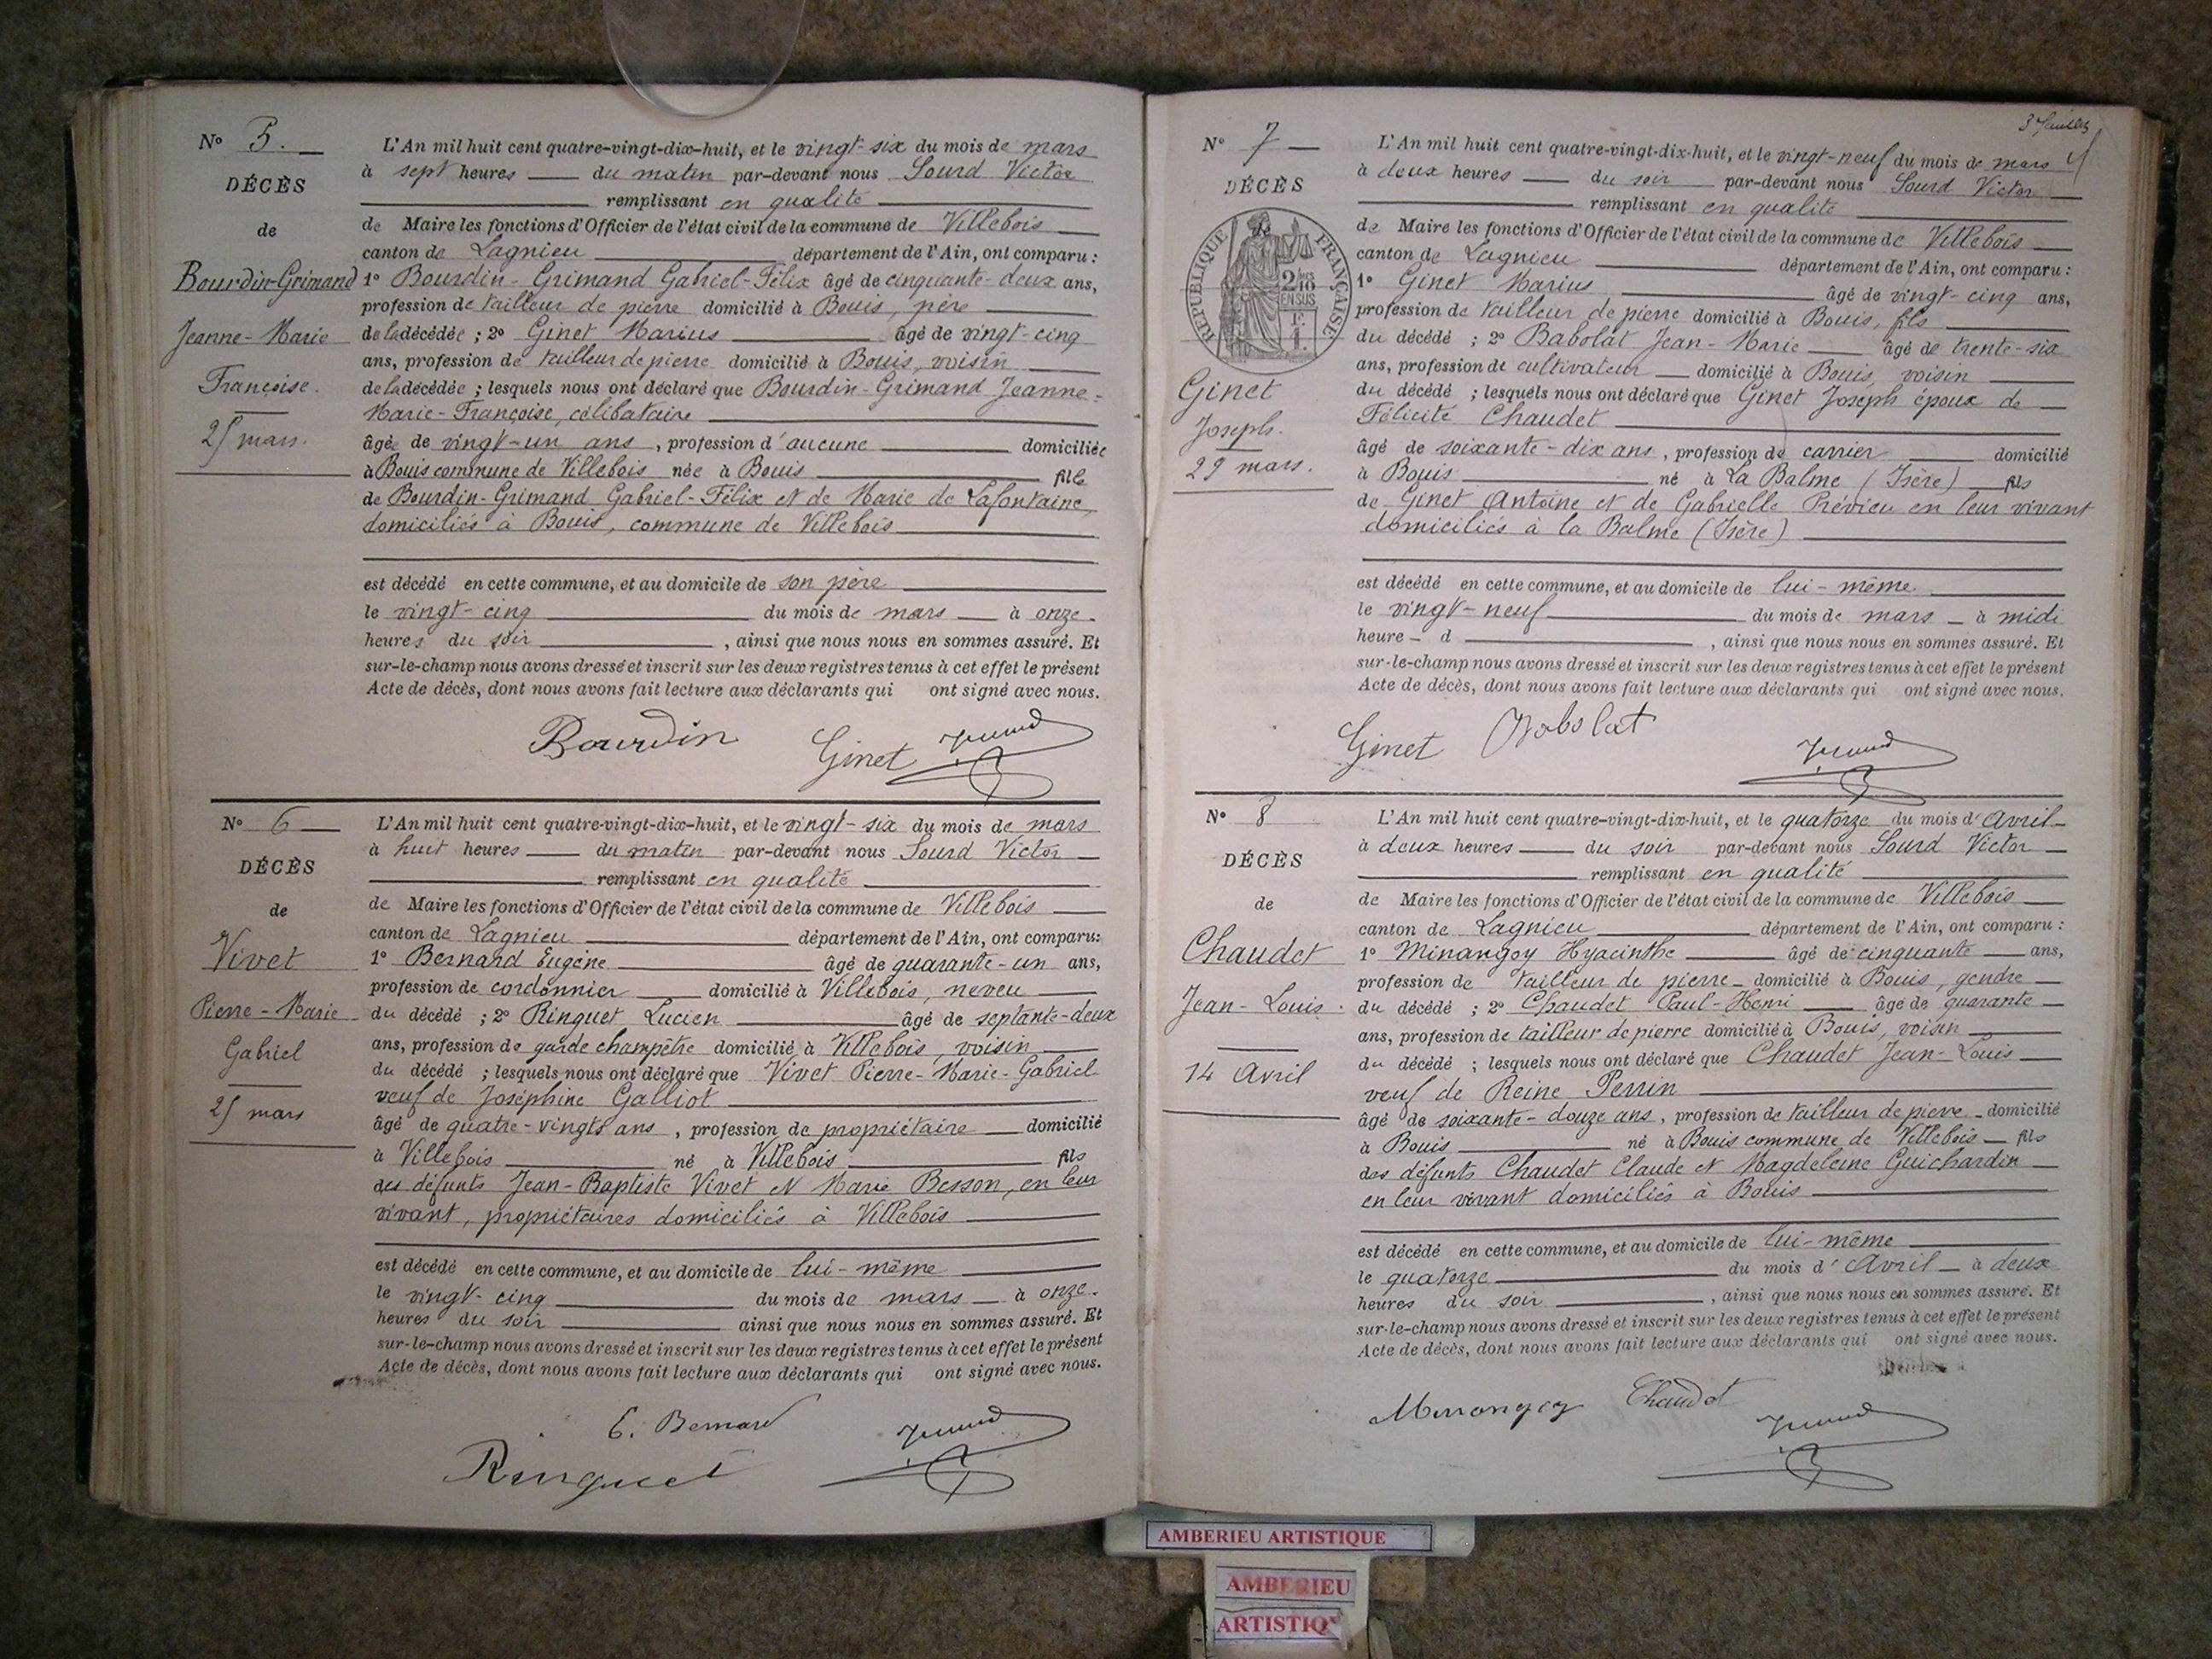 N° 5.
DÉCÈS
de
Bourdin-Grimand
Jeanne-Marie
Françoise.
25 mars.
L'An mil huit cent quatre-vingt-dix-huit, et le vingt-six du mois de mars
à sept heures du matin par-devant nous Sourd Victor
remplissant en qualité
de Maire les fonctions d'Officier de l'état civil de la commune de Villebois
canton de Lagnieu département de l'Ain, ont comparu :
1° Bourdin-Grimand Gabriel-Félix âgé de cinquante-deux ans,
profession de tailleur de pierre domicilié à Bouis, père
de la décédée ; 2° Ginet Marius âgé de vingt-cinq
ans, profession de tailleur de pierre domicilié à Bouis, voisin
de la décédée ; lesquels nous ont déclaré que Bourdin-Grimand Jeanne-
Marie-Françoise, célibataire
âgée de vingt-un ans, profession d'aucune domiciliée
à Bouis commune de Villebois née à Bouis fille
de Bourdin-Grimand Gabriel-Félix et de Marie de Lafontaine,
domiciliés à Bouis, commune de Villebois
est décédé en cette commune, et au domicile de son père
le vingt-cinq du mois de mars à onze
heures du soir, ainsi que nous nous en sommes assuré. Et
sur-le-champ nous avons dressé et inscrit sur les deux registres tenus à cet effet le présent
Acte de décès, dont nous avons fait lecture aux déclarants qui ont signé avec nous.
Bourdin Ginet
N° 6
DÉCÈS
de
Vivet
Pierre-Marie
Gabriel
25 mars
L'An mil huit cent quatre-vingt-dix-huit, et le vingt-six du mois de mars
à huit heures du matin par-devant nous Sourd Victor
remplissant en qualité
de Maire les fonctions d'Officier de l'état civil de la commune de Villebois
canton de Lagnieu département de l'Ain, ont comparu:
1° Bernard Eugène âgé de quarante-un ans,
profession de cordonnier domicilié à Villebois, neveu
du décédé ; 2° Ringuet Lucien âgé de septante-deux
ans, profession de garde champêtre domicilié à Villebois, voisin
du décédé ; lesquels nous ont déclaré que Vivet Pierre-Marie-Gabriel
veuf de Joséphine Galliot
âgé de quatre-vingts ans, profession de propriétaire domicilié
à Villebois né à Villebois fils
des défunts Jean-Baptiste Vivet et Marie Besson, en leur
vivant, propriétaires domiciliés à Villebois
est décédé en cette commune, et au domicile de lui-même
le vingt-cinq du mois de mars à onze
heures du soir ainsi que nous nous en sommes assuré. Et
sur-le-champ nous avons dressé et inscrit sur les deux registres tenus à cet effet le présent
Acte de décès, dont nous avons fait lecture aux déclarants qui ont signé avec nous.
E. Bernard
Ringuet
N° 7
DÉCÈS
RÉPUBLIQUE FRANÇAISE
2/10 EN SUS
Ginet
Joseph.
29 mars.
L'An mil huit cent quatre-vingt-dix-huit, et le vingt-neuf du mois de mars
à deux heures du soir par-devant nous Sourd Victor
remplissant en qualité
de Maire les fonctions d'Officier de l'état civil de la commune de Villebois
canton de Lagnieu département de l'Ain, ont comparu :
1° Ginet Marius âgé de vingt-cinq ans,
profession de tailleur de pierre domicilié à Bouis, fils
du décédé ; 2° Babolat Jean-Marie âgé de trente-six
ans, profession de cultivateur domicilié à Bouis, voisin
du décédé ; lesquels nous ont déclaré que Ginet Joseph époux de
Félicité Chaudet
âgé de soixante-dix ans, profession de carrier domicilié
à Bouis né à La Balme (Isère) fils
de Ginet Antoine et de Gabrielle Prévieu en leur vivant
domiciliés à la Balme (Isère)
est décédé en cette commune, et au domicile de lui-même
le vingt-neuf du mois de mars à midi
heure d , ainsi que nous nous en sommes assuré. Et
sur-le-champ nous avons dressé et inscrit sur les deux registres tenus à cet effet le présent
Acte de décès, dont nous avons fait lecture aux déclarants qui ont signé avec nous.
Ginet Babolat
N° 8
DÉCÈS
de
Chaudet
Jean-Louis.
14 Avril
L'An mil huit cent quatre-vingt-dix-huit, et le quatorze du mois d'Avril
à deux heures du soir par-devant nous Sourd Victor
remplissant en qualité
de Maire les fonctions d'Officier de l'état civil de la commune de Villebois
canton de Lagnieu département de l'Ain, ont comparu :
1° Minangoy Hyacinthe âgé de cinquante ans,
profession de tailleur de pierre domicilié à Bouis, gendre
du décédé ; 2° Chaudet Paul-Henri âgé de quarante
ans, profession de tailleur de pierre domicilié à Bouis, voisin
du décédé ; lesquels nous ont déclaré que Chaudet Jean-Louis
veuf de Reine Perrin
âgé de soixante-douze ans, profession de tailleur de pierre domicilié
à Bouis né à Bouis commune de Villebois fils
des défunts Chaudet Claude et Magdeleine Guichardin
en leur vivant domiciliés à Bouis
est décédé en cette commune, et au domicile de lui-même
le quatorze du mois d'Avril à deux
heures du soir, ainsi que nous nous en sommes assuré. Et
sur-le-champ nous avons dressé et inscrit sur les deux registres tenus à cet effet le présent
Acte de décès, dont nous avons fait lecture aux déclarants qui ont signé avec nous.
Minangoy Chaudet
AMBERIEU ARTISTIQUE
AMBERIEU
ARTISTIQ